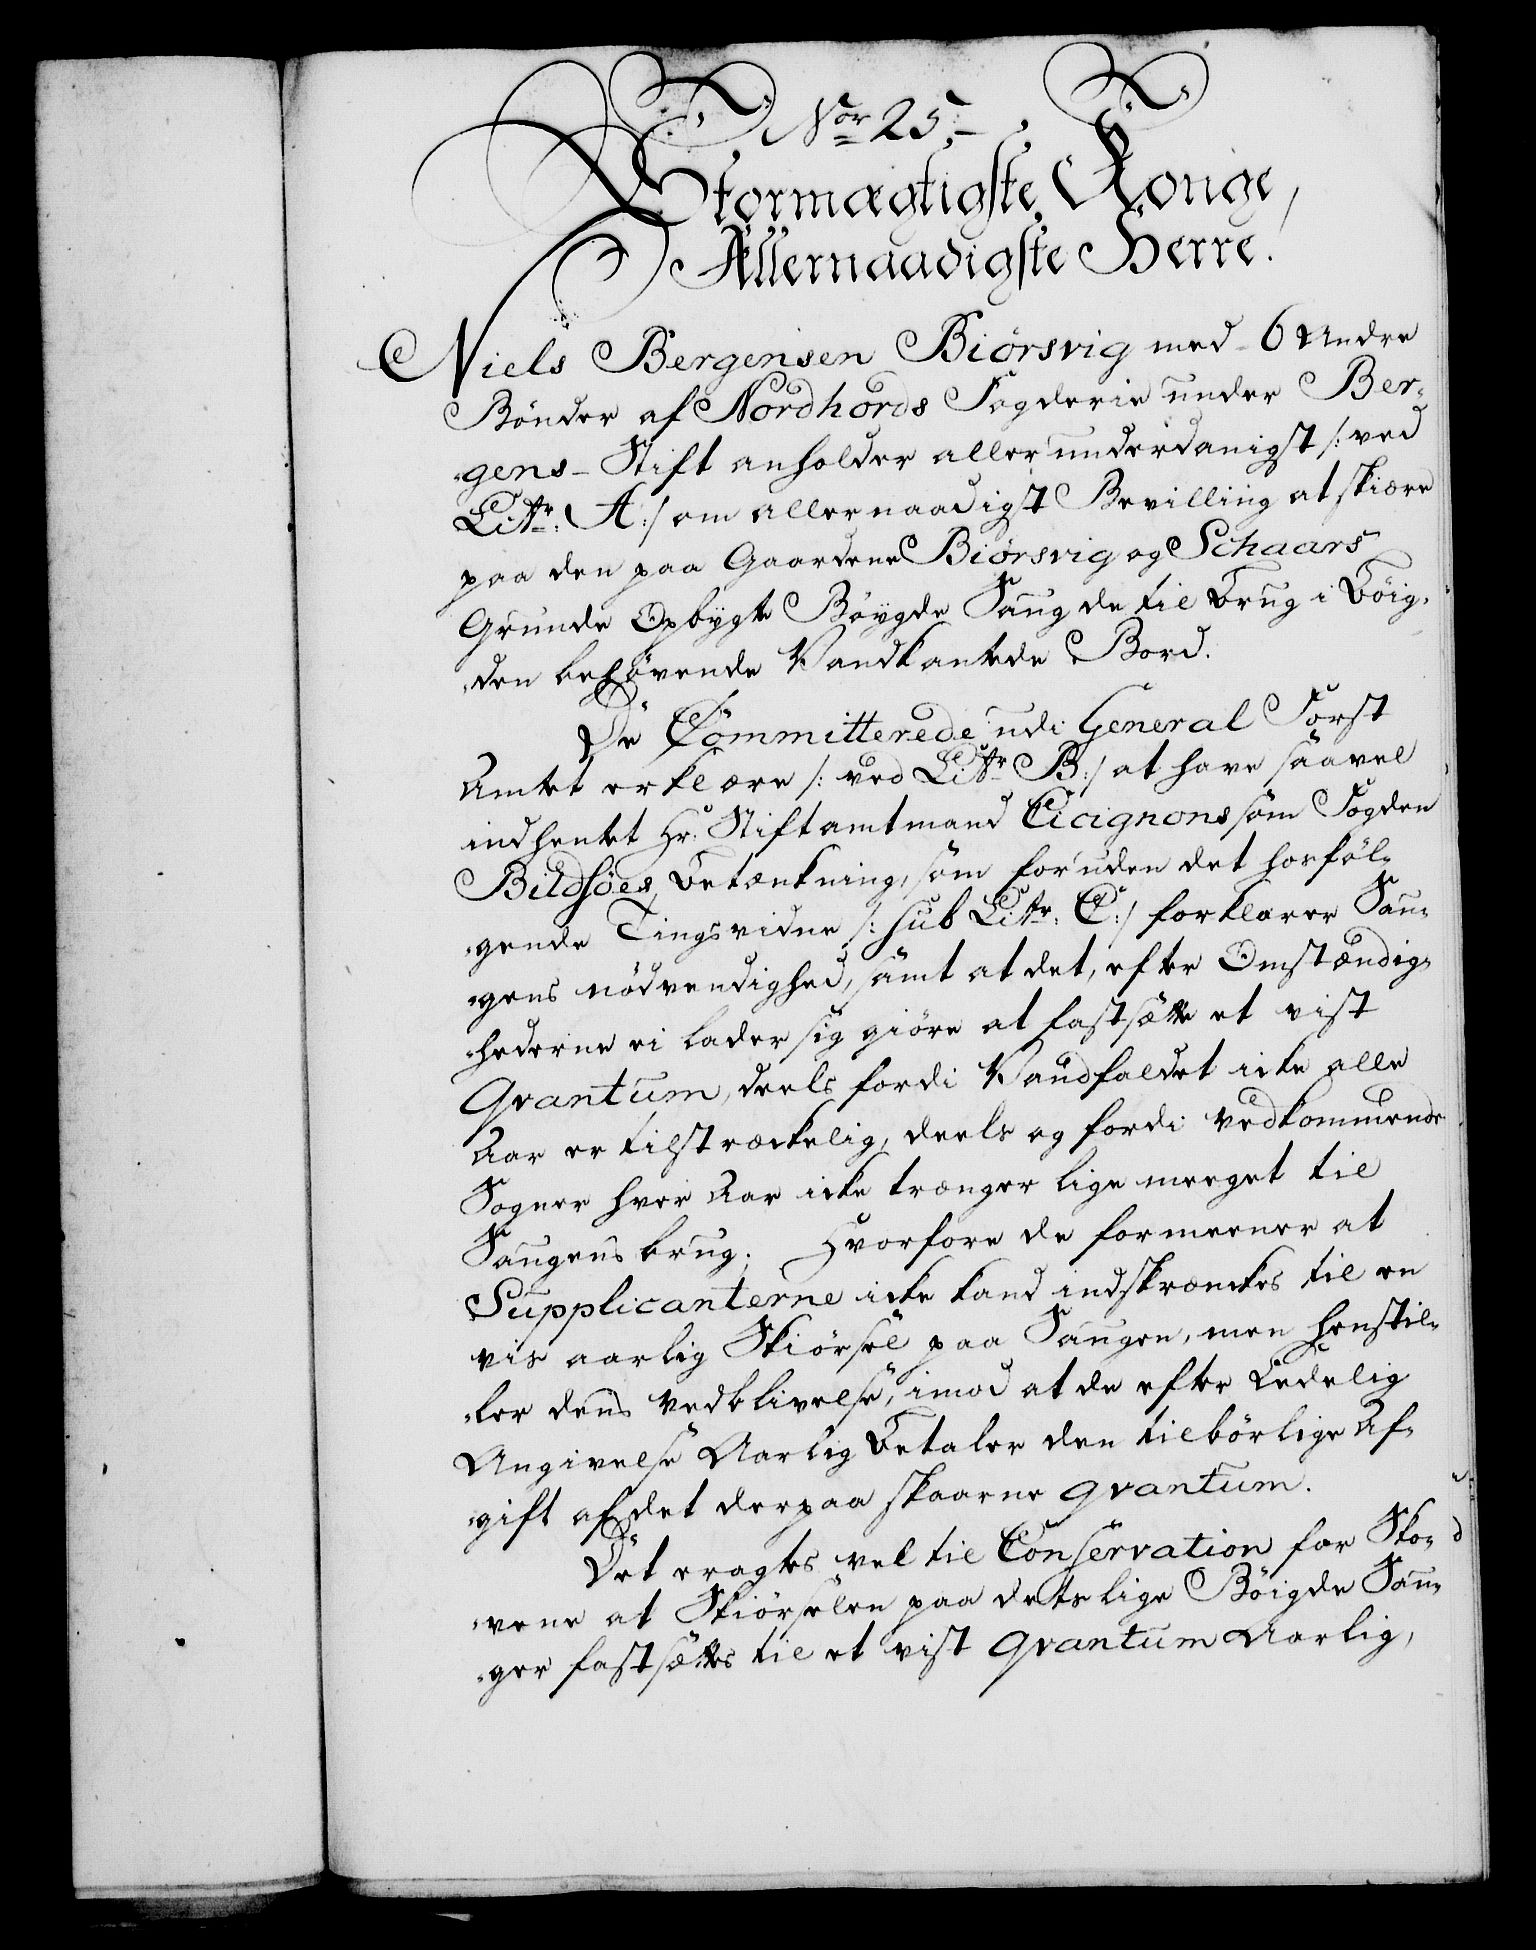 Nor 25.
Stormægtigste Konge,
Allernaadigste Herre.
Niels Bergensen Biørsvig med 6 andre
Bønder af Nordhords Fogderie under Ber-
gens Stift anholder allerunderdanigst /: ved
Littr: A :/ om allernaadigst Bevilling at skiære
paa den paa Gaardene Biørsvig og Schaars
Grunde Opbygte Bøygde Saug de til Brug i Bøig-
den behøvende Vandkantede Bord.
De Committerede udi General Forst
Amtet erklære /: ved Littr B :/ at have saavel
indhentet Hr: Stiftamtmand Cicignons som Fogden
Bildsøes Betænkning, som foruden det hosføl-
gende Tingsvidne /: sub Littr: C :/ forklarer Sau-
gens nødvendighed, samt at det, efter Omstændig-
hederne ei lader sig giøre at fastsætte et vist
Qvantum, deels fordi Vandfaldet icke alle
Aar er tilstræckelig, deels og fordi vedkommende
Sogner hver Aar icke trænger lige meeget til
Saugens brug. Hvorfore de formeener at
Supplicanterne icke kand indskrænckes til en
vis aarlig Skiørsel paa Saugen, men henstil-
ler dens vedblivelse, imod at de efter Eedelig
Angivelse Aarlig Betaler den tilbørlige Af-
gift af det derpaa skaarne qvantum.
Det eragtes vel til Conservation for Sko-
vene at Skiørselen paa detslige Bøigde Sau-
ger fastsættes til et vist qvantum Aarlig,